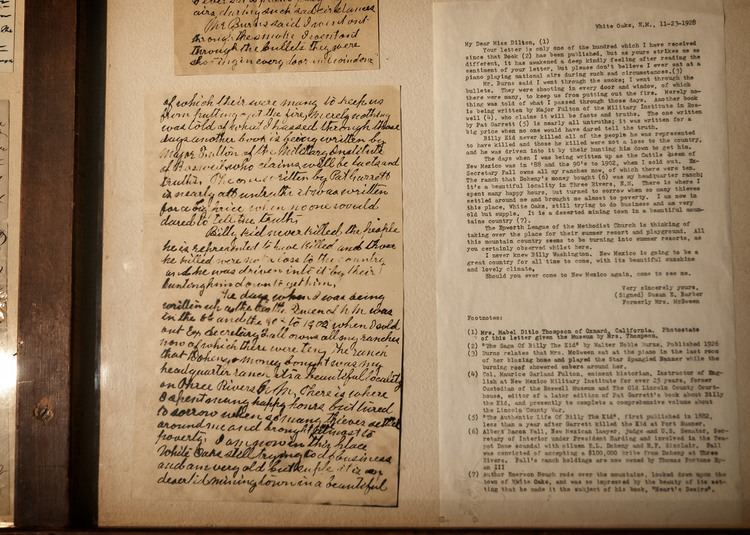 airs during such sad circumstances
Mr Burns said I went out
through the smoke I went out
through the bullets they were
shooting in every door and window
of which their were many to keep us
from putting out the fire, Merely nothing
was told of what I passed through those
days another book is being written by
Major Fulton of the Military Institute
of Roswell who claims will be facts and
truths The one written by Pat Garrett
is nearly all untruths it was written
for a big price when no one would
dared to tell the truth
Billy Kid never killed the people
he is represented to have killed and those
he killed were not a loss to the country
and he was driven into it by their
hunting him down to get him,
The days when I was being
written up as the Cattle Queen of N.M. was
in the 88 and the 90s to 1902 when I sold
out Ex Secretary Fall owns all my ranches
now of which there were ten, The ranch
that Doheny money bought was my
headquarter ranch its a beautiful locality
on Three Rivers N.M, There is where
I spent many happy hours but turned
to sorrow when so many thieves settled
around me and brought almost to
poverty. I am now in this place
White Oaks still trying to do business
and am very old but suple it is a
deserted mining town in a beautiful
White Oaks, N.M., 11-23-1928
My Dear Miss Dilton, (1)
Your letter is only one of the hundred which I have received
since that Book (2) has been published, but as yours strikes me so
different, it has awakened a deep kindly feeling after reading the
sentiment of your letter, but please don't believe I ever sat at a
piano playing national airs during such sad circumstances.(3)
Mr. Burns said I went through the smoke; I went through the
bullets. They were shooting in every door and window, of which
there were many, to keep us from putting out the fire. Merely no-
thing was told of what I passed through those days. Another book
is being written by Major Fulton of the Military Institute in Ros-
well (4), who claims it will be facts and truths. The one written
by Pat Garrett (5) is nearly all untruths; it was written for a
big price when no one would have dared tell the truth.
Billy Kid never killed all of the people he was represented
to have killed and those he killed were not a loss to the country,
and he was driven into it by their hunting him down to get him.
The days when I was being written up as the Cattle Queen of
New Mexico was in '88 and the 90's to 1902, when I sold out. Ex-
Secretary Fall owns all my ranches now, of which there were ten.
The ranch that Doheny's money bought (6) was my headquarter ranch;
it's a beautiful locality in Three Rivers, N.M. There is where I
spent many happy hours, but turned to sorrow when so many thieves
settled around me and brought me almost to poverty. I am now in
this place, White Oaks, still trying to do business and am very
old but supple. It is a deserted mining town in a beautiful moun-
tains country (7).
The Epworth League of the Methodist Church is thinking of
taking over the place for their summer resort and playground. All
this mountain country seems to be turning into summer resorts, as
you certainly observed whilst here.
I never knew Billy Washington. New Mexico is going to be a
great country for all time to come, with its beautiful sunshine
and lovely climate.
Should you ever come to New Mexico again, come to see me.
Very sincerely yours,
(Signed) Susan E. Barber
Formerly Mrs. McSween
Footnotes:
(1) Mrs. Mabel Ditlo Thompson of Oxnard, California. Photostats
of this letter given the Museum by Mrs. Thompson.
(2) "The Saga Of Billy The Kid" by Walter Noble Burns, Published 1926
(3) Burns relates that Mrs. McSween sat at the piano in the last room
of her blazing home and played the Star Spangled Banner while the
burning roof showered embers around her.
(4) Col. Maurice Garland Fulton, eminent historian, Instructor of Eng-
lish at New Mexico Military Institute for over 25 years, former
Custodian of the Roswell Museum and The Old Lincoln County Court-
house, editor of a later edition of Pat Garrett's book about Billy
the Kid, and presently to complete a comprehensive volume about
the Lincoln County War.
(5) "The Authentic Life Of Billy The Kid", first published in 1882,
less than a year after Garrett killed the Kid at Fort Sumner.
(6) Albert Bacon Fall, New Mexico lawyer, judge and U.S. Senator, Sec-
retary of Interior under President Harding and involved in the Tea-
pot Dome scandal with oilmen E.L. Doheny and H.F. Sinclair. Fall
was convicted of accepting a $100,000 bribe from Doheny at Three
Rivers. Fall's ranch holdings are now owned by Thomas Fortune Ry-
an III
(7) Author Emerson Hough rode over the mountains, looked down upon the
town of White Oaks, and was so impressed by the beauty of its set-
ting that he made it the subject of his book, "Heart's Desire".